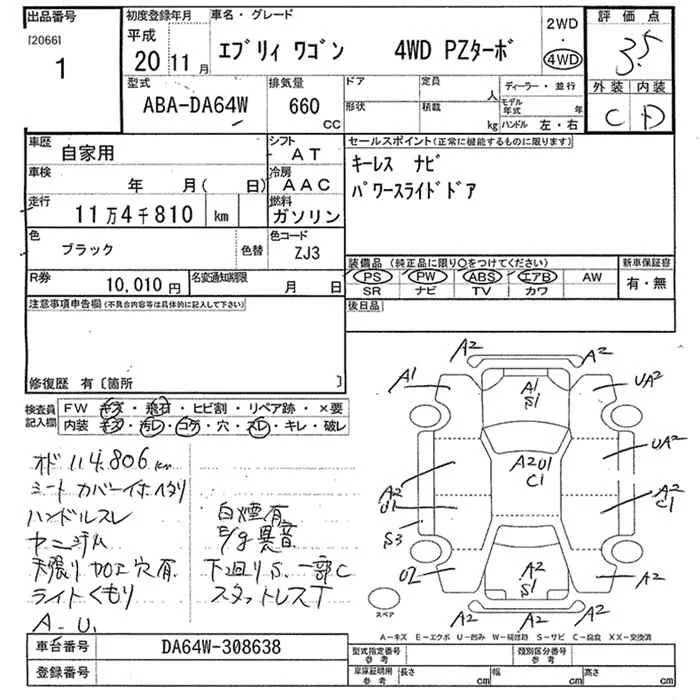 出品番号
[2066]
1
初度登録年月
平成
20 11月
車名・グレード
エブリィ ワゴン 4WD PZターボ
2WD
・
4WD
評価点
3.5
外装 内装
C D
型式
ABA-DA64W
排気量
660
CC
ドア
定員
人
形状
積載
kg
ディーラー・並行
モデル年式 年
ハンドル 左・右
車歴
自家用
シフト
AT
車検
年 月( 日)
冷房
AAC
走行
11万4千810 km
燃料
ガソリン
色
ブラック
色替
色コード
ZJ3
R券
10,010円
名変通知期限
月 日
セールスポイント(正常に機能するものに限ります)
キーレス ナビ
パワースライドドア
装備品(純正品に限り○をつけてください)
PS PW ABS エアB AW
SR ナビ TV カワ
新車保証書
有・無
後日品
注意事項申告欄(不具合内容等は具体的に記入して下さい)
修復歴 有〔箇所 〕
検査員記入欄
FW キズ・飛石・ヒビ割・リペア跡・×要
内装 キズ・汚レ・コゲ・穴・スレ・キレ・破レ
オド 114.806 km
シートカバー付 ヘタリ
ハンドルスレ
ヤニジム
天張り加工穴有
ライトくもり
A. U.
白煙有
E/g異音
下廻りS. 一部C
スタットレスT
A2
A2
A1
A1
S1
UA2
UA2
A2
U1
A2U1
C1
A2
C1
S3
U2
A2
S1
A2
A2
A2
スペア
A－キズ E－エクボ U－凹み W－補修跡 S－サビ C－腐食 XX－交換済
車台番号
DA64W-308638
登録番号
型式指定番号
参考
類別区分番号
参考
車庫証明用
参考
長さ cm
幅 cm
高さ cm